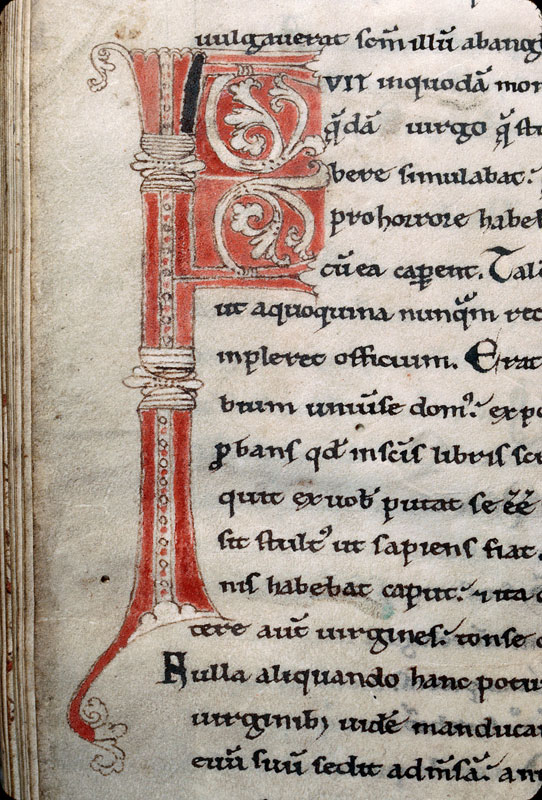 uulgauerat scm̄ illū abang
FVIT inquodā mon
q̄dā uirgo q̄ stu
bere simulabat.
pro horrore habe
cū ea cap̄ent. Tali
ut aquoquina nunqm̄ rec
inpleret officium. Erat
brum uniuse dom᾿. exp
p̱bans qd̄ inscis̄ libris sc
quit exuob̄ putat se ēē
sit stult᾿ ut sapiens fiat.
nis habebat caput. ⁊ ita
tere aut̄ uirgines. tonse
Nulla aliquando hanc potu
uirginib; uidē manduca
euū suū sedit admsā̄. an